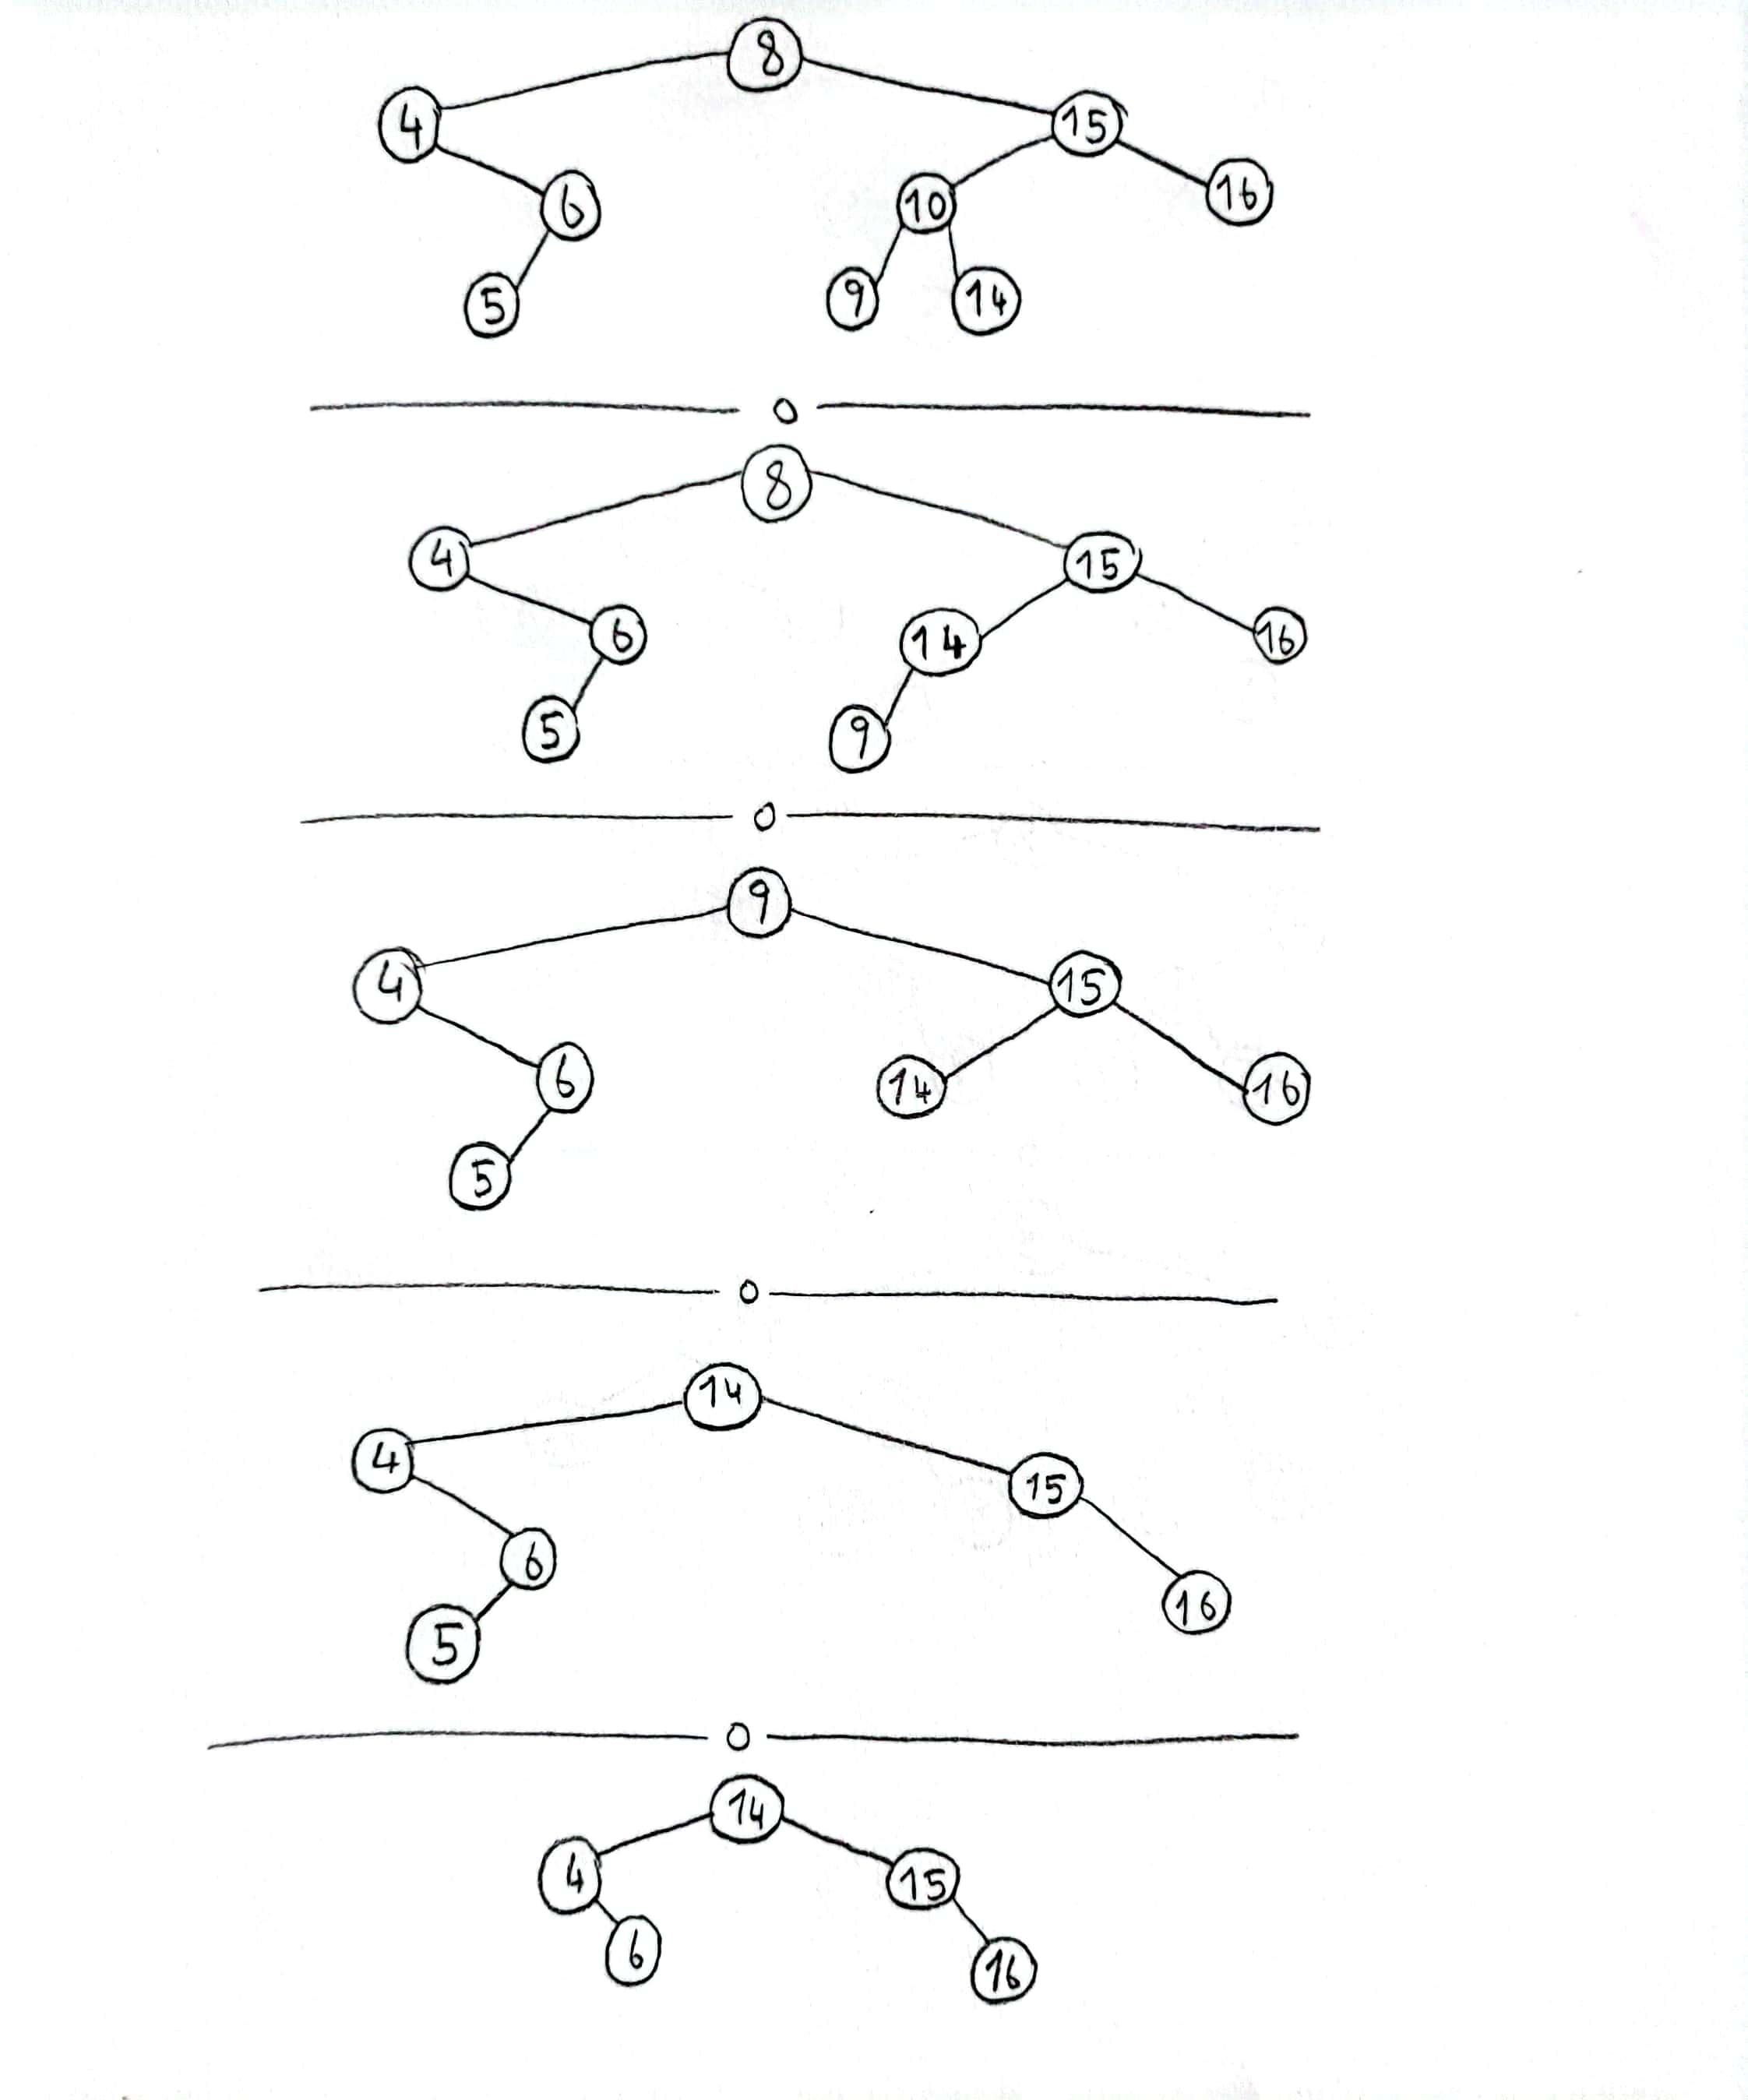 8
4 15
6 10 16
5 9 14
8
4 15
6 14 16
5 9
9
4 15
6 14 16
5
14
4 15
6 16
5
14
4 15
6 16